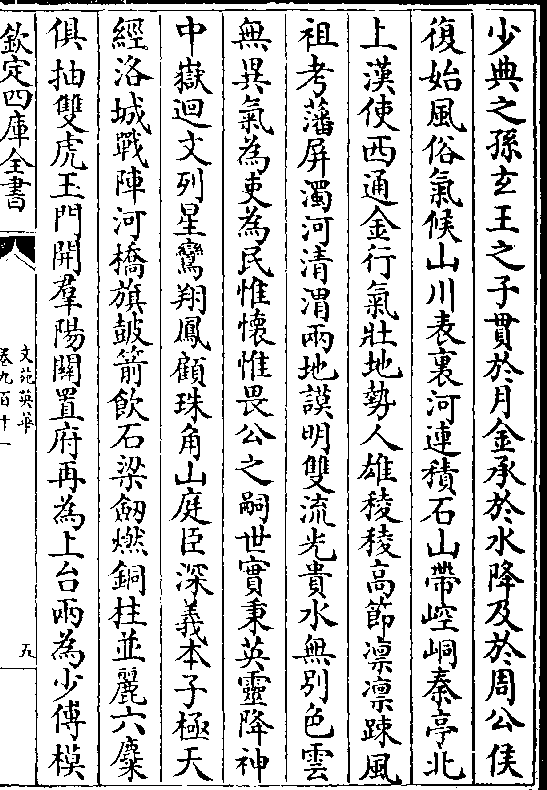 少典之孫玄王之子貫於月金承於水降及於周公侯
復始風俗氣候山川表裏河連積石山帶崆峒秦亭北
上漢使西通金行氣壯地勢人雄稜稜高節凛凛踈風
祖考藩屏濁河清渭兩地謨明雙流光貴水無別色雲
無異氣為吏為民惟懷惟畏公之嗣世實秉英靈降神
中嶽迴文列星鸞翔鳳顧珠角山庭臣深義本子極天
經洛城戰陣河橋旗鼓箭飲石梁劒燃銅柱並麗六麋
俱抽雙虎玉門開羣陽關置府再為上台兩為少傅模
欽定四庫全書
文苑英華
卷九百十一
五